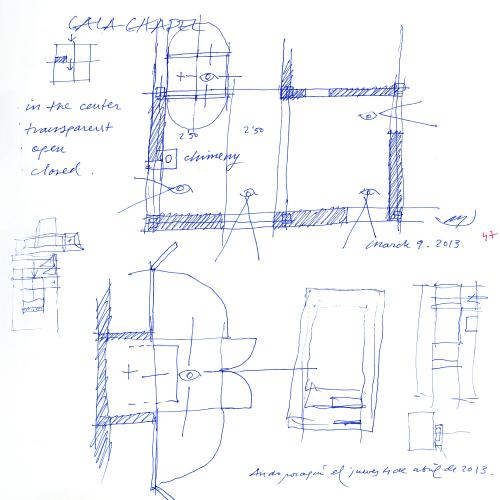 CALA CHAPEL
in the center
transparent
open
closed.
2'50
2'50
chimeny
march 9. 2013
47
Ando por aquí el jueves 4 de abril de 2013.